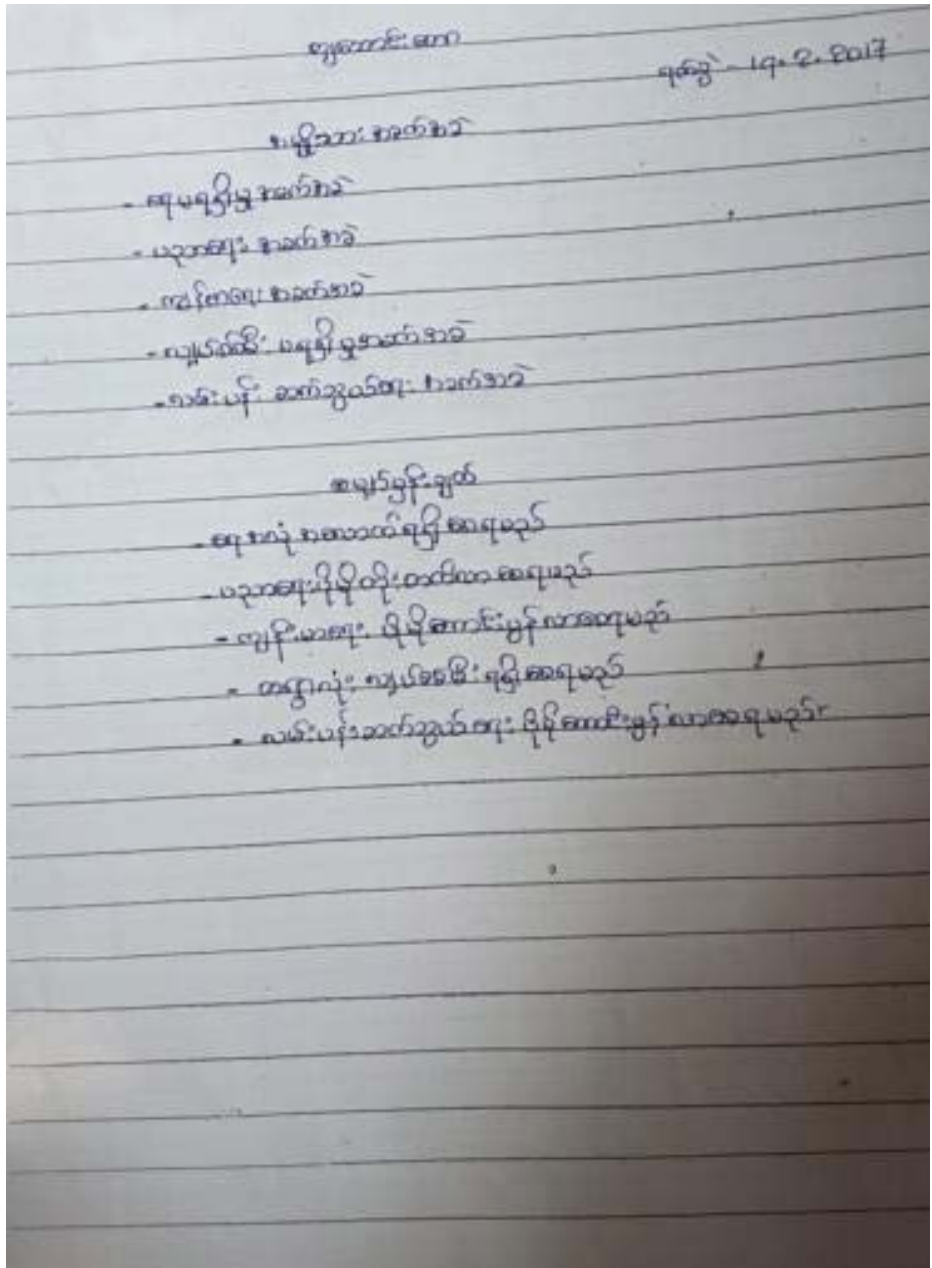 ရက်စွဲ - 19. 2. 2017
အမျိုးသား အခက်အခဲ
- ရေမရရှိမှု အခက်အခဲ
- ပညာရေး အခက်အခဲ
- ကျန်းမာရေး အခက်အခဲ
- လျှပ်စစ်မီး မရရှိမှုအခက်အခဲ
- လမ်းပန်း ဆက်သွယ်ရေး အခက်အခဲ
မျှော်မှန်းချက်
- ရေ အလုံ အလောက် ရရှိ စေရမည်
- ပညာရေး ပိုမို တိုးတက်လာ စေရမည်
- ကျန်းမာရေး ပိုမို ကောင်းမွန် လာစေရမည်
- တရွာလုံး လျှပ်စစ်မီး ရရှိ စေရမည်
- လမ်းပန်းဆက်သွယ်ရေး ပိုမိုကောင်းမွန် လာစေရမည်။